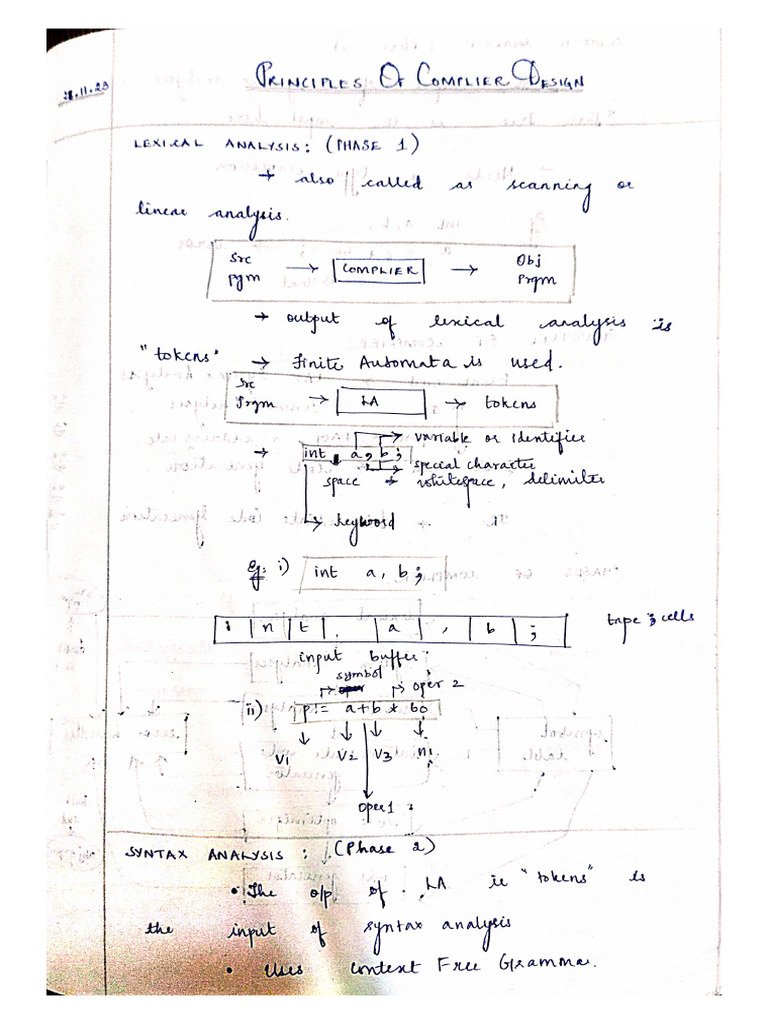 PRINCIPLES OF COMPLIER DESIGN
.11.23
LEXICAL ANALYSIS: (PHASE 1)
→ also called as scanning or
linear analysis.
Src pgm → COMPLIER → Obj Prgm
→ output of lexical analysis is
"tokens" → Finite Automata is used.
Src Prgm → LA → tokens
→ variable or identifier
→ int a, b;
→ special character
space → whitespace, delimiter
→ keyword
Eg: i) int a, b;
i n t a , b ; tape ; cells
input buffer.
symbol oper 2
ii) p:= a+b * 60
V1 V2 V3 n1
oper 1
SYNTAX ANALYSIS: (Phase 2)
• The o/p of LA ie "tokens" is
the input of syntax analysis
• Uses Context Free Grammar.